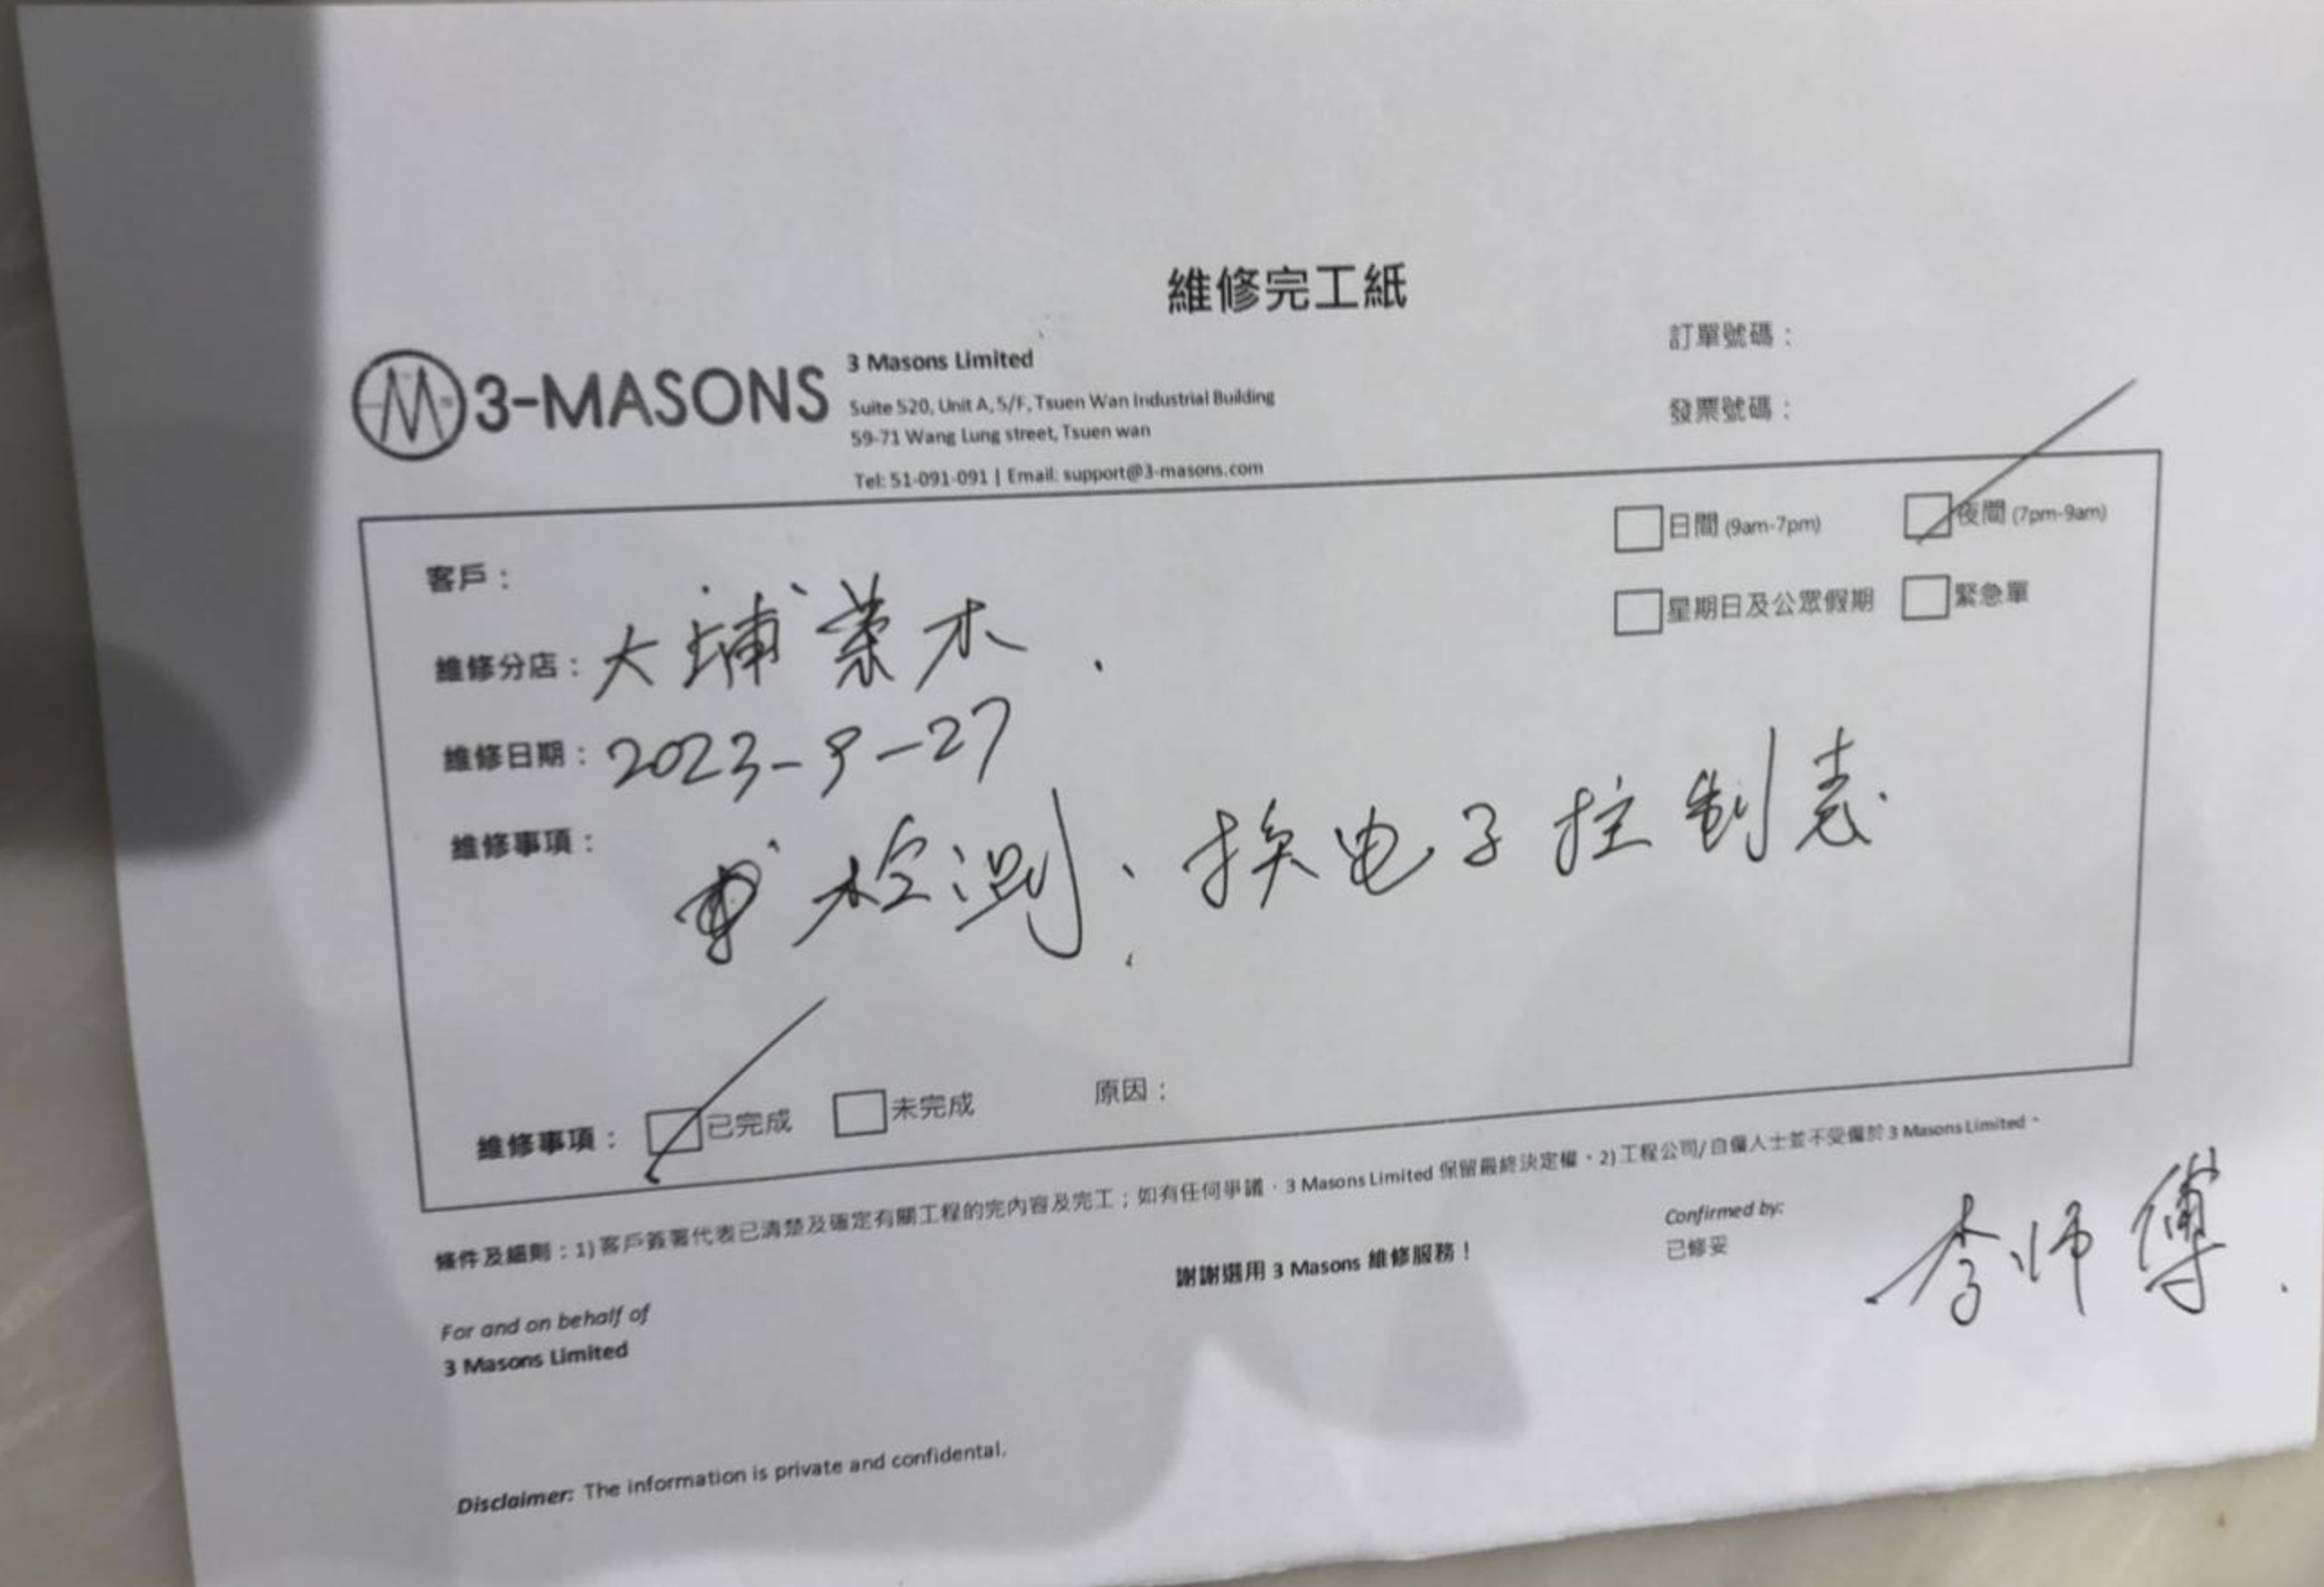 維修完工紙
訂單號碼：
發票號碼：
3-MASONS
3 Masons Limited
Suite 520, Unit A, 5/F, Tsuen Wan Industrial Building
59-71 Wang Lung street, Tsuen wan
Tel: 51-091-091 | Email: support@3-masons.com
日間 (9am-7pm) 夜間 (7pm-9am)
星期日及公眾假期 緊急單
客戶：
維修分店：大埔 木
維修日期：2023-9-27
維修事項：
检测、换电子控制表
維修事項： 已完成 未完成 原因：
條件及細則：1)客戶簽署代表已清楚及確定有關工程的完內容及完工；如有任何爭議，3 Masons Limited 保留最終決定權。2)工程公司/自僱人士並不受僱於 3 Masons Limited。
謝謝選用 3 Masons 維修服務！
Confirmed by:
已修妥
李师傅
For and on behalf of
3 Masons Limited
Disclaimer: The information is private and confidental.